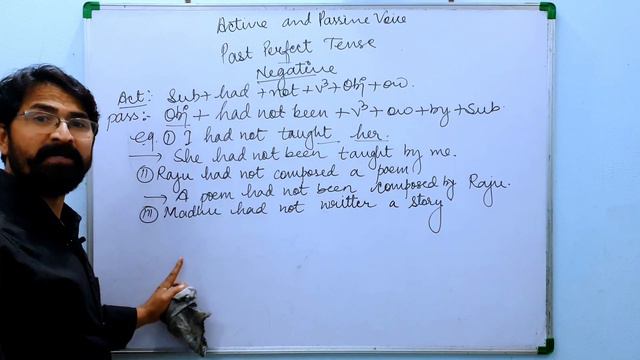 Active and Passive Voice
Past Perfect Tense
Negative
Act: Sub + had + not + V³ + Obj + ow.
pass:- Obj + had not been + V³ + ow + by + Sub.
e.g. (i) I had not taught her.
→ She had not been taught by me.
(ii) Raju had not composed a poem
→ A poem had not been composed by Raju.
(iii) Madhu had not written a story